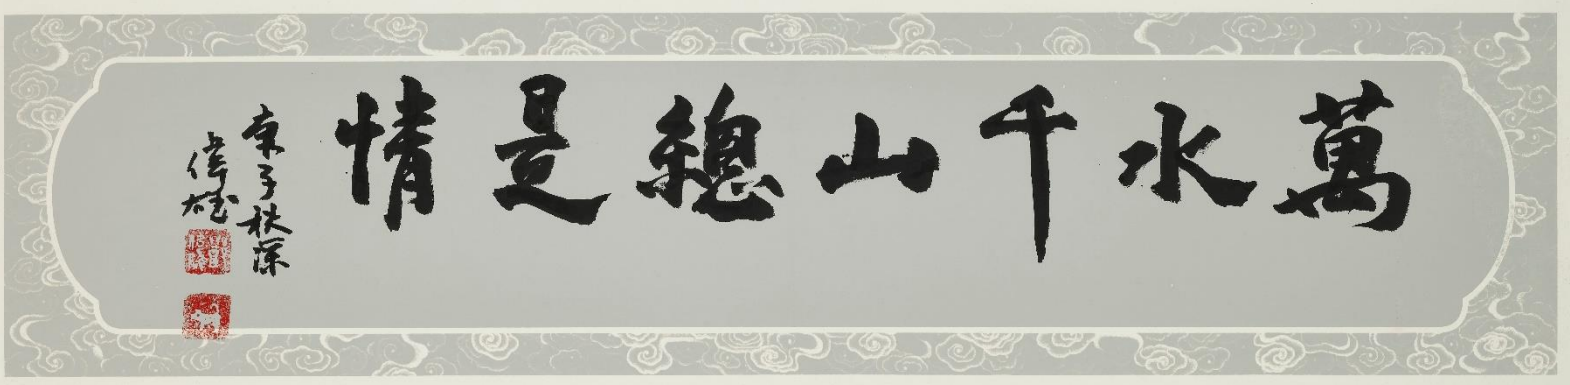 萬水千山總是情
庚子秋深
偉雄